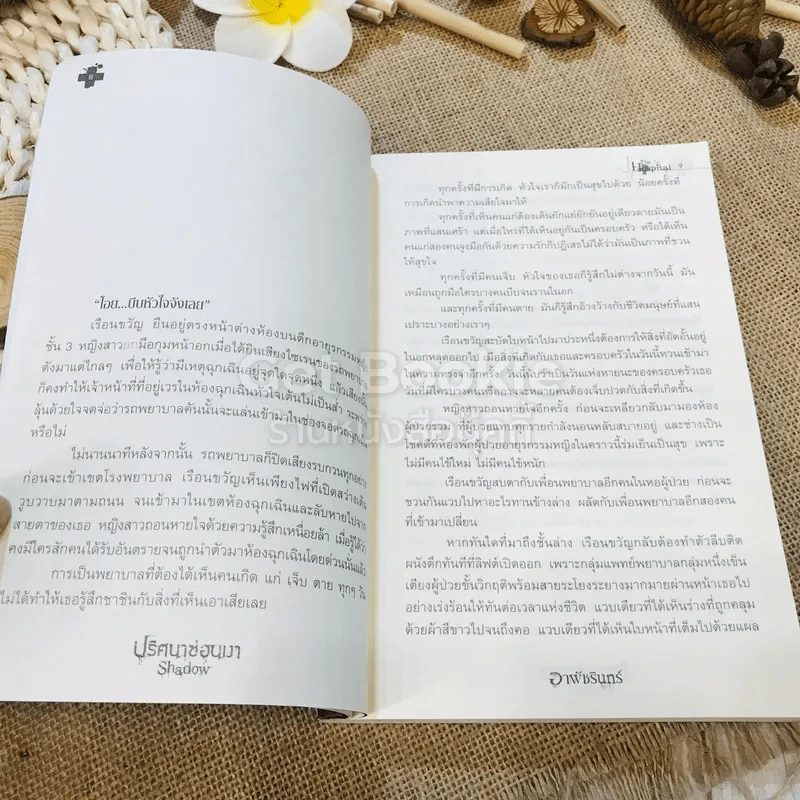 8
"โอย...บีบหัวใจจังเลย"
เรือนขวัญ ยืนอยู่ตรงหน้าต่างห้องบนตึกอายุรกรรมหญิง
ชั้น 3 หญิงสาวยกมือกุมหน้าอกเมื่อได้ยินเสียงไซเรนของรถพยาบาล
ดังมาแต่ไกลๆ เพื่อให้รู้ว่ามีเหตุฉุกเฉินอยู่จุดใดจุดหนึ่ง แล้วเสียงนั้น
ก็คงทำให้เจ้าหน้าที่ที่อยู่เวรในห้องฉุกเฉินหัวใจเต้นไม่เป็นส่ำ ระหว่าง
ลุ้นด้วยใจจดจ่อว่ารถพยาบาลคันนั้นจะแล่นเข้ามาในช่องจอดฉุกเฉิน
หรือไม่
ไม่นานนาทีหลังจากนั้น รถพยาบาลก็ปิดเสียงรบกวนทุกอย่าง
ก่อนจะเข้าเขตโรงพยาบาล เรือนขวัญเห็นเพียงไฟที่เปิดสว่างเต้น
วูบวาบมาตามถนน จนเข้ามาในเขตห้องฉุกเฉินและลับหายไปจาก
สายตาของเธอ หญิงสาวถอนหายใจด้วยความรู้สึกเหนื่อยล้า เมื่อรู้ได้ว่า
คงมีใครสักคนได้รับอันตรายจนถูกนำตัวมาห้องฉุกเฉินโดยด่วนนั้นแล้ว
การเป็นพยาบาลที่ต้องได้เห็นคนเกิด แก่ เจ็บ ตาย ทุกๆ วัน
ไม่ได้ทำให้เธอรู้สึกชาชินกับสิ่งที่เห็นเอาเสียเลย
ปริศนาซ่อนเงา
Shadow
Hospital 9
ทุกครั้งที่มีการเกิด หัวใจเราก็มักเป็นสุขไปด้วย น้อยครั้งที่
การเกิดนำพาความเสียใจมาให้
ทุกครั้งที่เห็นคนแก่ต้องเดินยักแย่ยักยันอยู่เดียวดายมันเป็น
ภาพที่แสนเศร้า แต่เมื่อใหร่ที่ได้เห็นอยู่กันเป็นครอบครัว หรือได้เห็น
คนแก่สองคนจูงมือกันด้วยความรักก็ปฏิเสธไม่ได้ว่ามันเป็นภาพที่ชวน
ให้สุขใจ
ทุกครั้งที่มีคนเจ็บ หัวใจของเธอก็รู้สึกไม่ต่างจากวันนี้ มัน
เหมือนถูกมือใครบางคนบีบจนรานในอก
และทุกครั้งที่มีคนตาย มันก็รู้สึกอ้างว้างกับชีวิตมนุษย์ที่แสน
เปราะบางอย่างเราๆ
เรือนขวัญสะบัดใบหน้าไปมาประหนึ่งต้องการให้สิ่งที่อัดอั้นอยู่
ในอกหลุดออกไป เมื่อสิ่งที่เกิดกับเธอและครอบครัวในวันนี้หวนเข้ามา
ในความทรงจำอีกครั้ง วันนี้นับเป็นวันแห่งหายนะของครอบครัวเธอ
วันที่มีใครบางคนหรืออาจจะหลายคนต้องเจ็บปวดกับสิ่งที่เกิดขึ้น
หญิงสาวถอนหายใจอีกครั้ง ก่อนจะเหลียวกลับมามองห้อง
ผู้ป่วยรวม ที่ผู้ป่วยแทบทุกรายกำลังนอนหลับสบายอยู่ และช่างเป็น
โชคดีที่ห้องพักผู้ป่วยอายุรกรรมหญิงในคราวนี้ร่มเย็นเป็นสุข เพราะ
ไม่มีคนไข้ใหม่ ไม่มีคนไข้หนัก
เรือนขวัญสบตากับเพื่อนพยาบาลอีกคนในหอผู้ป่วย ก่อนจะ
ชวนกันแวบไปหาอะไรทานข้างล่าง ผลัดกับเพื่อนพยาบาลอีกสองคน
ที่เข้ามาเปลี่ยน
หากทันใดที่มาถึงชั้นล่าง เรือนขวัญกลับต้องทำตัวลีบติด
ผนังตึกทันทีที่ลิฟต์เปิดออก เพราะกลุ่มแพทย์พยาบาลกลุ่มหนึ่งเข็น
เตียงผู้ป่วยขั้นวิกฤติพร้อมสายระโยงระยางมากมายผ่านหน้าเธอไป
อย่างเร่งร้อนให้ทันต่อเวลาแห่งชีวิต แวบเดียวที่ได้เห็นร่างที่ถูกคลุม
ด้วยผ้าสีขาวไปจนถึงคอ แวบเดียวที่ได้เห็นใบหน้าที่เต็มไปด้วยแผล
อาพัชรินทร์
Get Bookie
ร้านหนังสือมุ๊กกี้